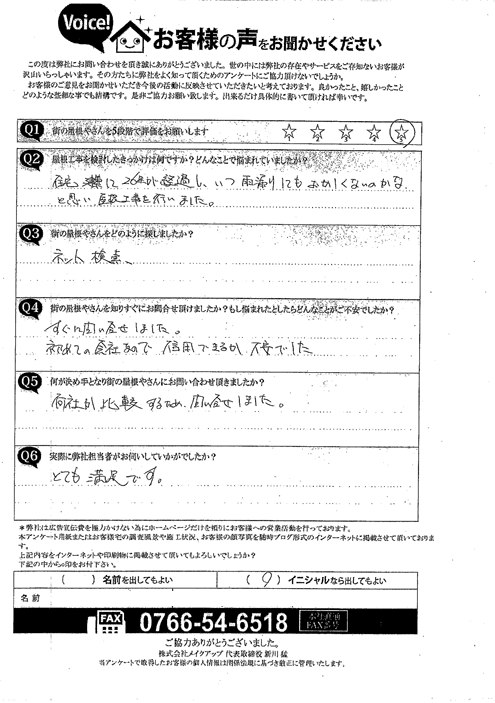 Voice!
お客様の声をお聞かせください
この度は弊社にお問い合わせを頂き誠にありがとうございました。世の中には弊社の存在やサービスをご存知ないお客様が
沢山いらっしゃいます。その方たちに弊社をよく知って頂くためのアンケートにご協力頂けないでしょうか。
お客様のご意見をお聞かせいただき今後の活動に反映させていただきたいと考えております。良かったこと、嬉しかったこと
どのような些細な事でも結構です。是非ご協力お願い致します。出来るだけ具体的に書いて頂ければ幸いです。
Q1 街の屋根やさんを5段階で評価をお願いします ☆1 ☆2 ☆3 ☆4 ☆5
Q2 屋根工事を検討したきっかけは何ですか？どんなことで悩まれていましたか？
住宅 に26年が経過し、いつ雨漏りしてもおかしくないのかな
と思い 工事を行いました。
Q3 街の屋根やさんをどのように探しましたか？
ネット検索、
Q4 街の屋根やさんを知りすぐにお問合せ頂けましたか？もし悩まれたとしたらどんなことがご不安でしたか？
すぐに問い合せしました。
初めての会社なので信用できるか不安でした
Q5 何が決め手となり街の屋根やさんにお問い合わせ頂きましたか？
何社か比較するため、問い合せしました。
Q6 実際に弊社担当者がお伺いしていかがでしたか？
とても満足です。
＊弊社は広告宣伝費を極力かけない為にホームページだけを頼りにお客様への営業活動を行っております。
本アンケート用紙またはお客様宅の調査風景や施工状況、お客様の顔写真を随時ブログ形式のインターネットに掲載させて頂いておりま
す。
上記内容をインターネットや印刷物に掲載させて頂いてもよろしいでしょうか？
下記の中から○印をお付け下さい。
（ ）名前を出してもよい （ ）イニシャルなら出してもよい
名前
FAX 0766-54-6518 FAX番号
ご協力ありがとうございました。
株式会社メイクアップ 代表取締役 新川 猛
当アンケートで取得したお客様の個人情報は関係法規に基づき厳正に管理いたします。